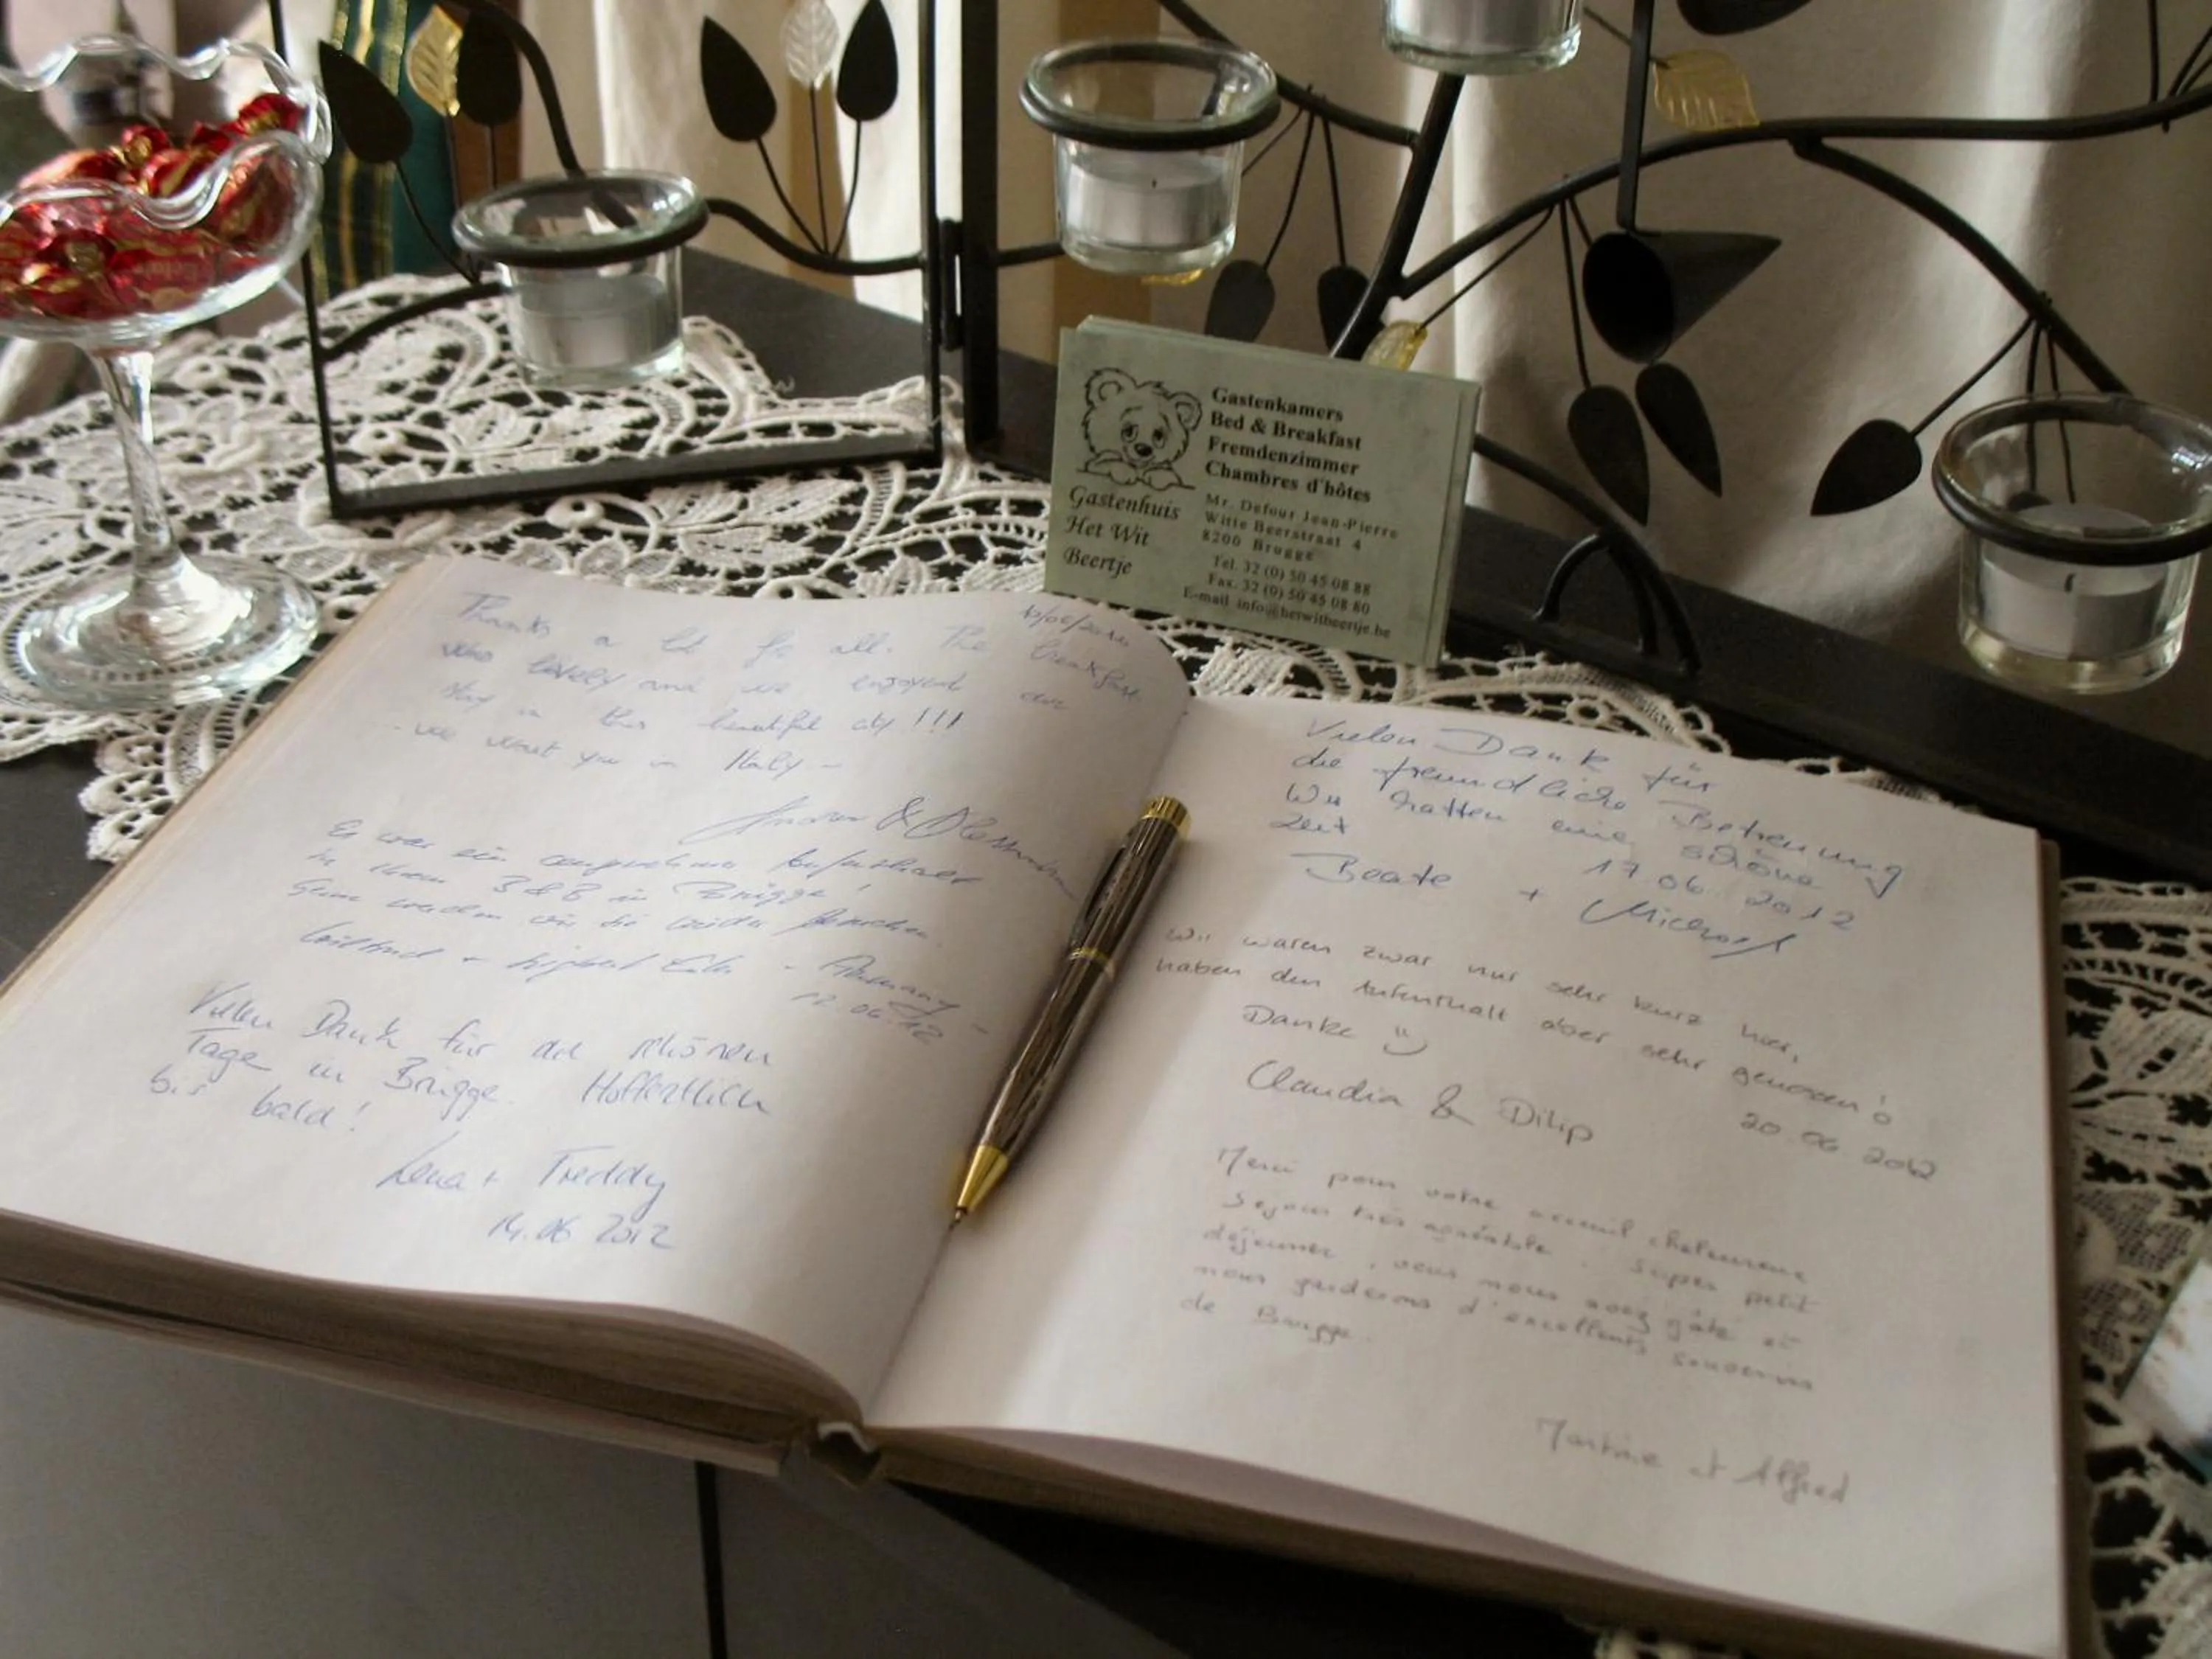 Gastenkamers
Bed & Breakfast
Fremdenzimmer
Chambres d'hôtes
Gastenhuis
Het Wit
Beertje
Mr. Defour Jean-Pierre
Witte Beerstraat 4
8200 Brugge
Tel. 32 (0) 50 45 08 88
Fax. 32 (0) 50 45 08 80
E-mail info@hetwitbeertje.be
Thanks a lot for all. The breakfast
was lovely and we enjoyed our
stay in this beautiful city!!!
- we wait you in Italy -
Es war ein angenehmer Aufenthalt
in Ihrem B&B in Brügge!
Gern werden wir Sie weiter
- Germany -
12.06.12
Vielen Dank für die schönen
Tage in Brügge. Hoffentlich
bis bald!
Lena + Freddy
14.06 2012
Vielen Dank für
die freundliche Betreuung
Wir hatten eine schöne
Zeit
17.06.2012
Beate + Michael
Wir waren zwar nur sehr kurz hier,
haben den Aufenthalt aber sehr genossen!
Danke
Claudia & Dilip
20.06.2012
Merci pour votre accueil chaleureux
Séjour très agréable. Super petit
déjeuner, vous nous avez gâté et
nous garderons d'excellents souvenirs
de Bruges.
Martine et Alfred